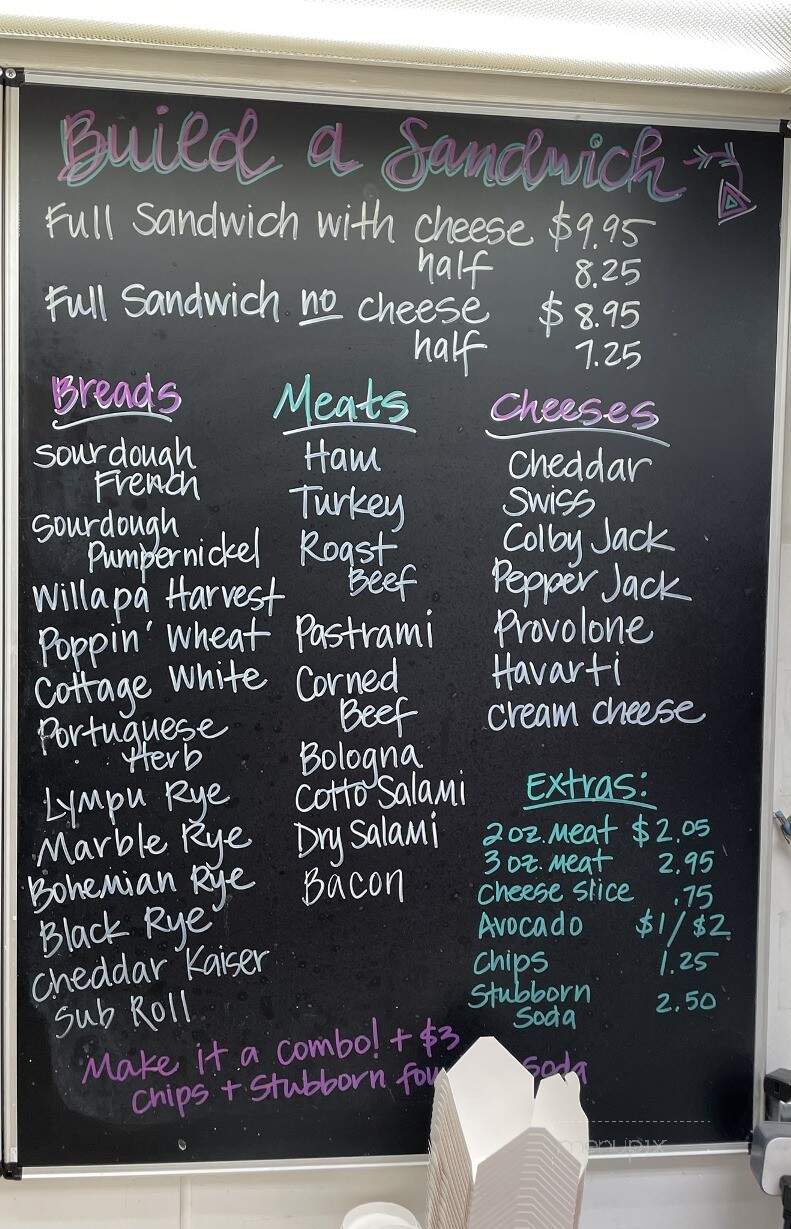 Build a Sandwich
Full Sandwich with cheese $9.95
half 8.25
Full Sandwich no cheese $8.95
half 7.25
Breads
Sourdough
French
Sourdough
Pumpernickel
Willapa Harvest
Poppin' Wheat
Cottage White
Portuguese
Herb
Lympu Rye
Marble Rye
Bohemian Rye
Black Rye
Cheddar Kaiser
Sub Roll
Meats
Ham
Turkey
Roast
Beef
Pastrami
Corned
Beef
Bologna
Cotto Salami
Dry Salami
Bacon
Cheeses
Cheddar
Swiss
Colby Jack
Pepper Jack
Provolone
Havarti
Cream cheese
Extras:
2 oz. meat $2.05
3 oz. meat 2.95
Cheese slice .75
Avocado $1/$2
Chips 1.25
Stubborn
Soda 2.50
Make it a combo! + $3
Chips + Stubborn soda
menupix